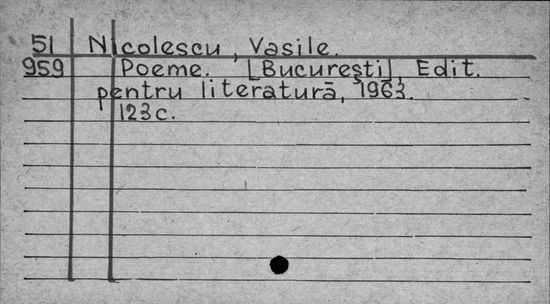 51 Nicolescu, Vasile.
959 Poeme. [Bucureşti], Edit.
pentru literatură, 1963.
123c.